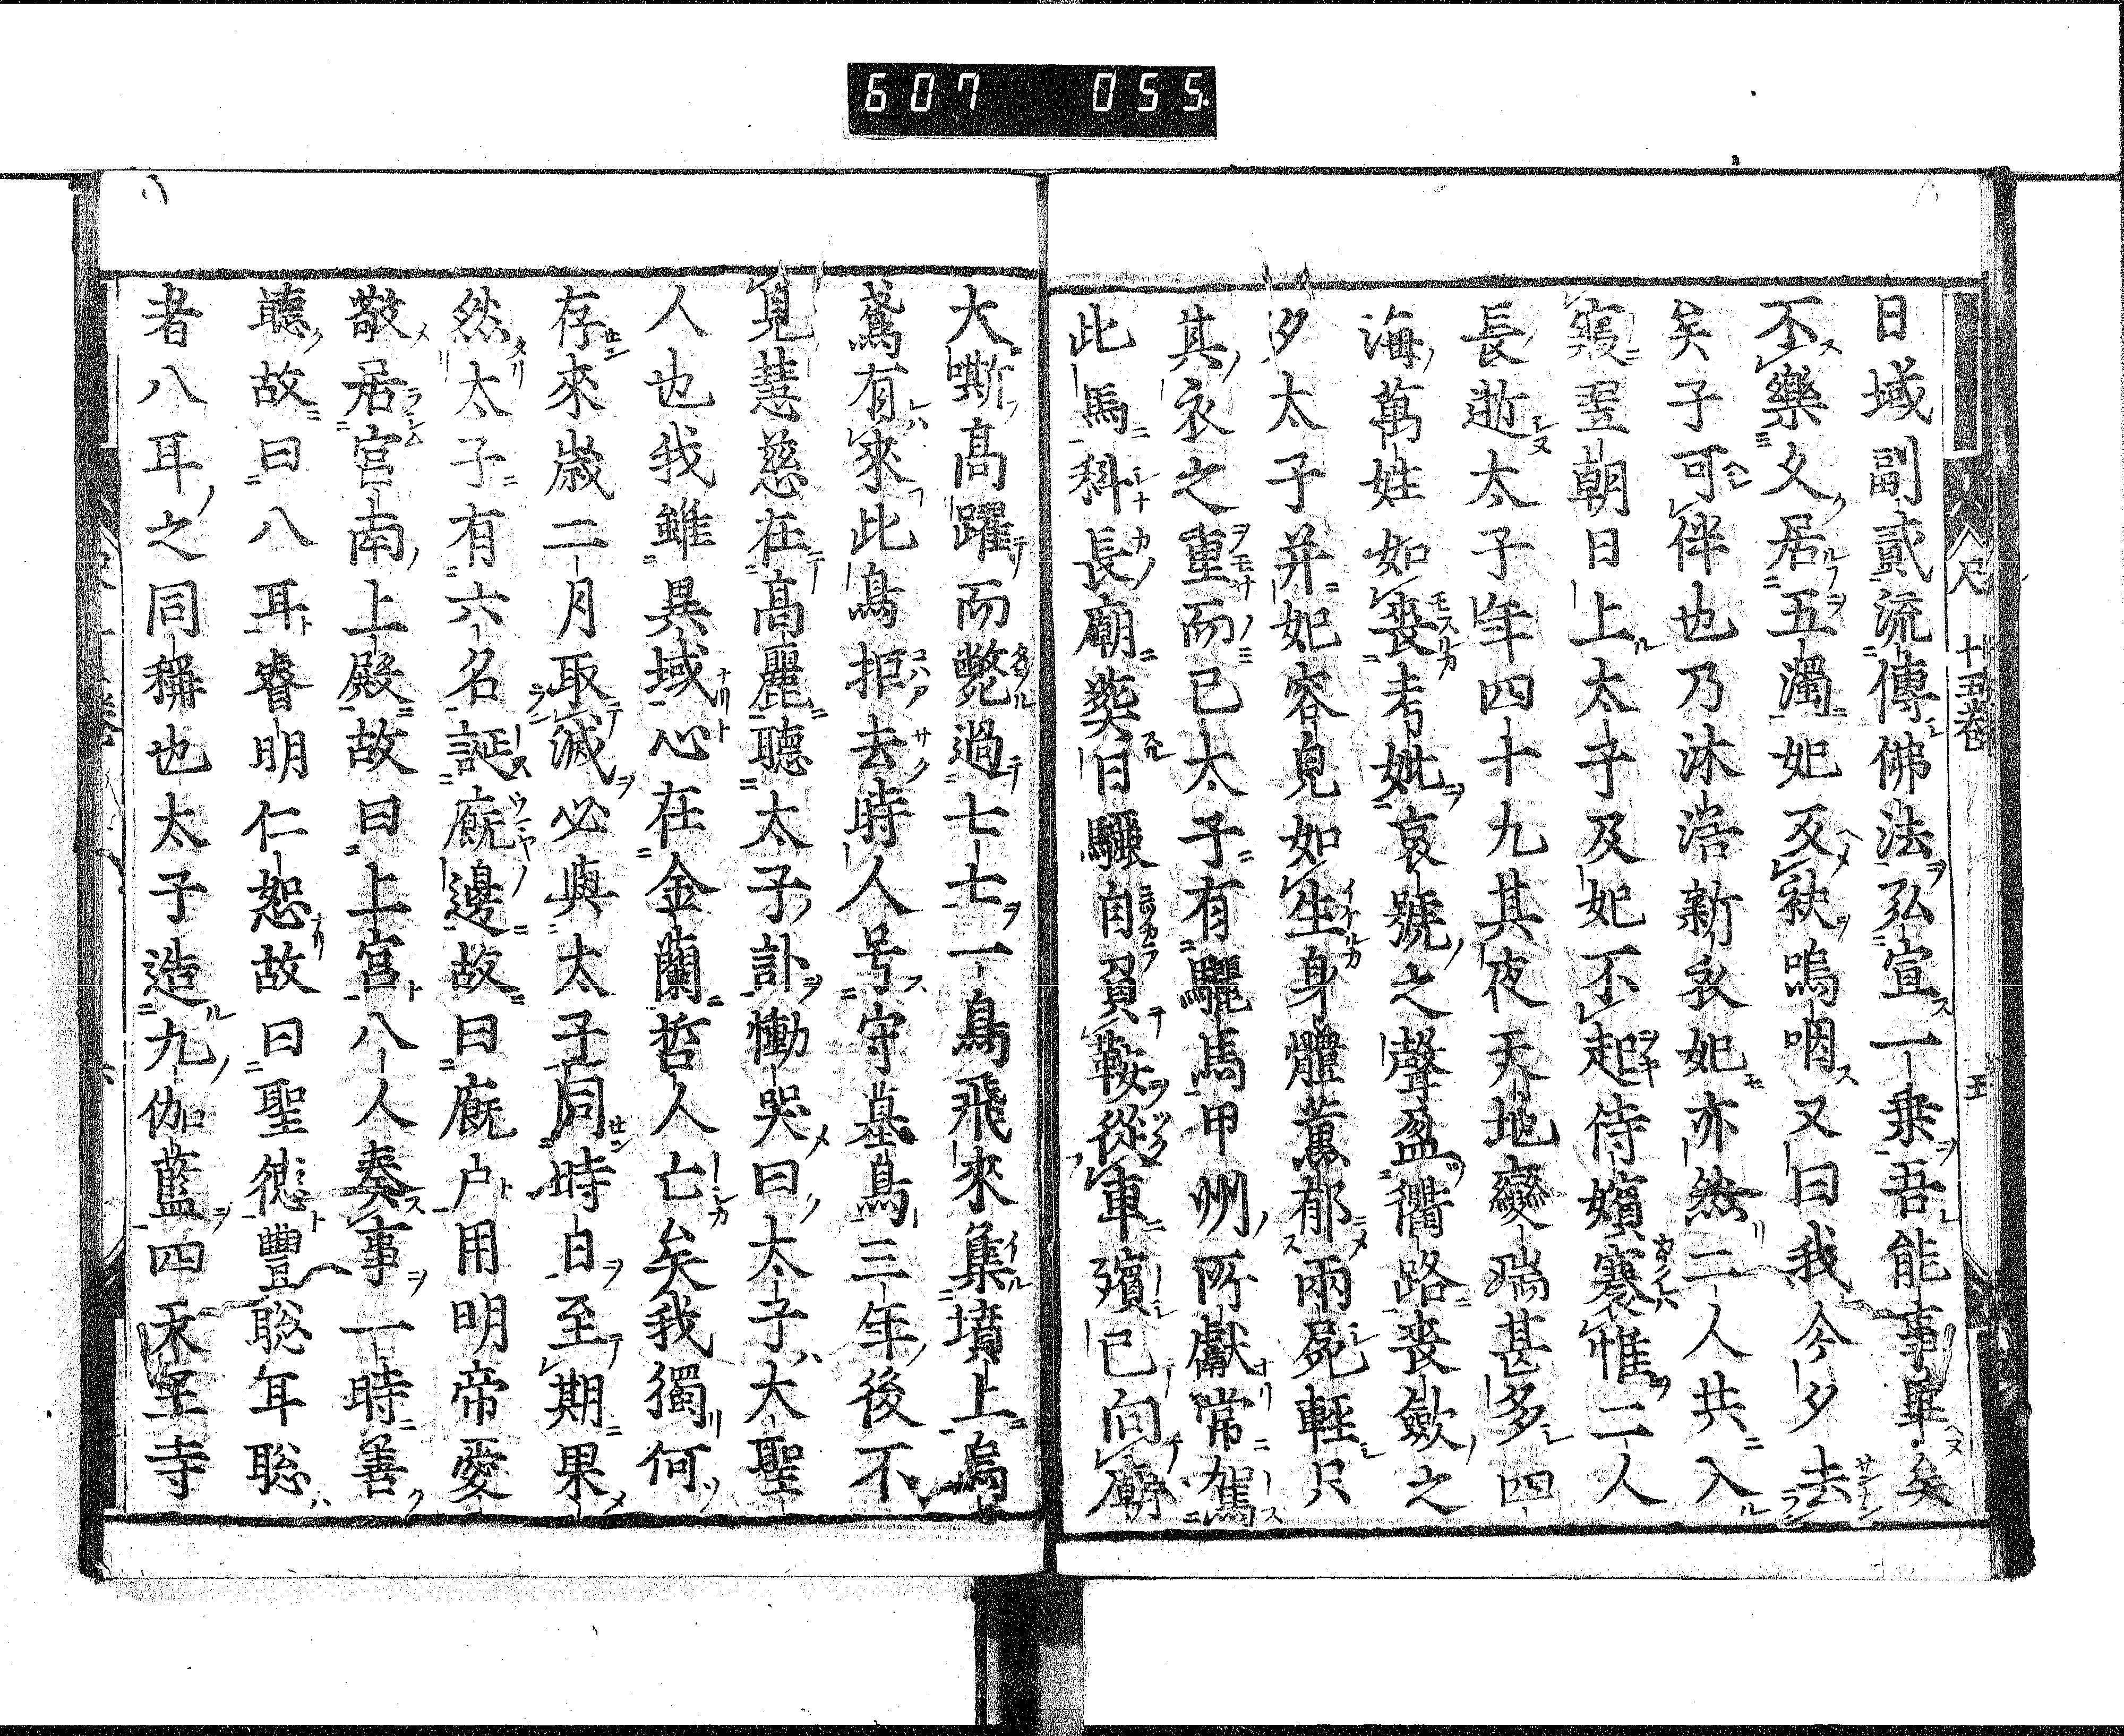 607 055
尺 十五卷 五
日域副貳流傳佛法弘宣一乘吾能事畢矣
不樂久居五濁妃反袂嗚咽又曰我今夕去
矣子可伴也乃沐浴新衣妃亦然二人共入
寢翌朝日上太子及妃不起侍嬪褰帷二人
長逝太子年四十九其夜天地變瑞甚多四
海萬姓如喪考妣哀號之聲盈衢路喪斂之
夕太子并妃容皃如生身體薰郁兩屍輕只
其衣之重而已太子有驪馬甲州所獻常駕
此馬科長廟葬日驪自負鞍從車殯已向廟
大嘶高躍而斃過七七一鳥飛來集墳上烏
鳶有來此鳥拒去時人号守墓鳥三年後不
見慧慈在高麗聽太子訃慟哭曰太子大聖
人也我雖異域心在金蘭哲人亡矣我獨何
存來歲二月取滅必與太子同時日至期果
然太子有六名誕廐邊故曰廐戶用明帝愛
敬居宮南上殿故曰上宮八人奏事一時善
聽故曰八耳睿明仁恕故曰聖德豐聡耳聡
者八耳之同稱也太子造九伽藍四天王寺